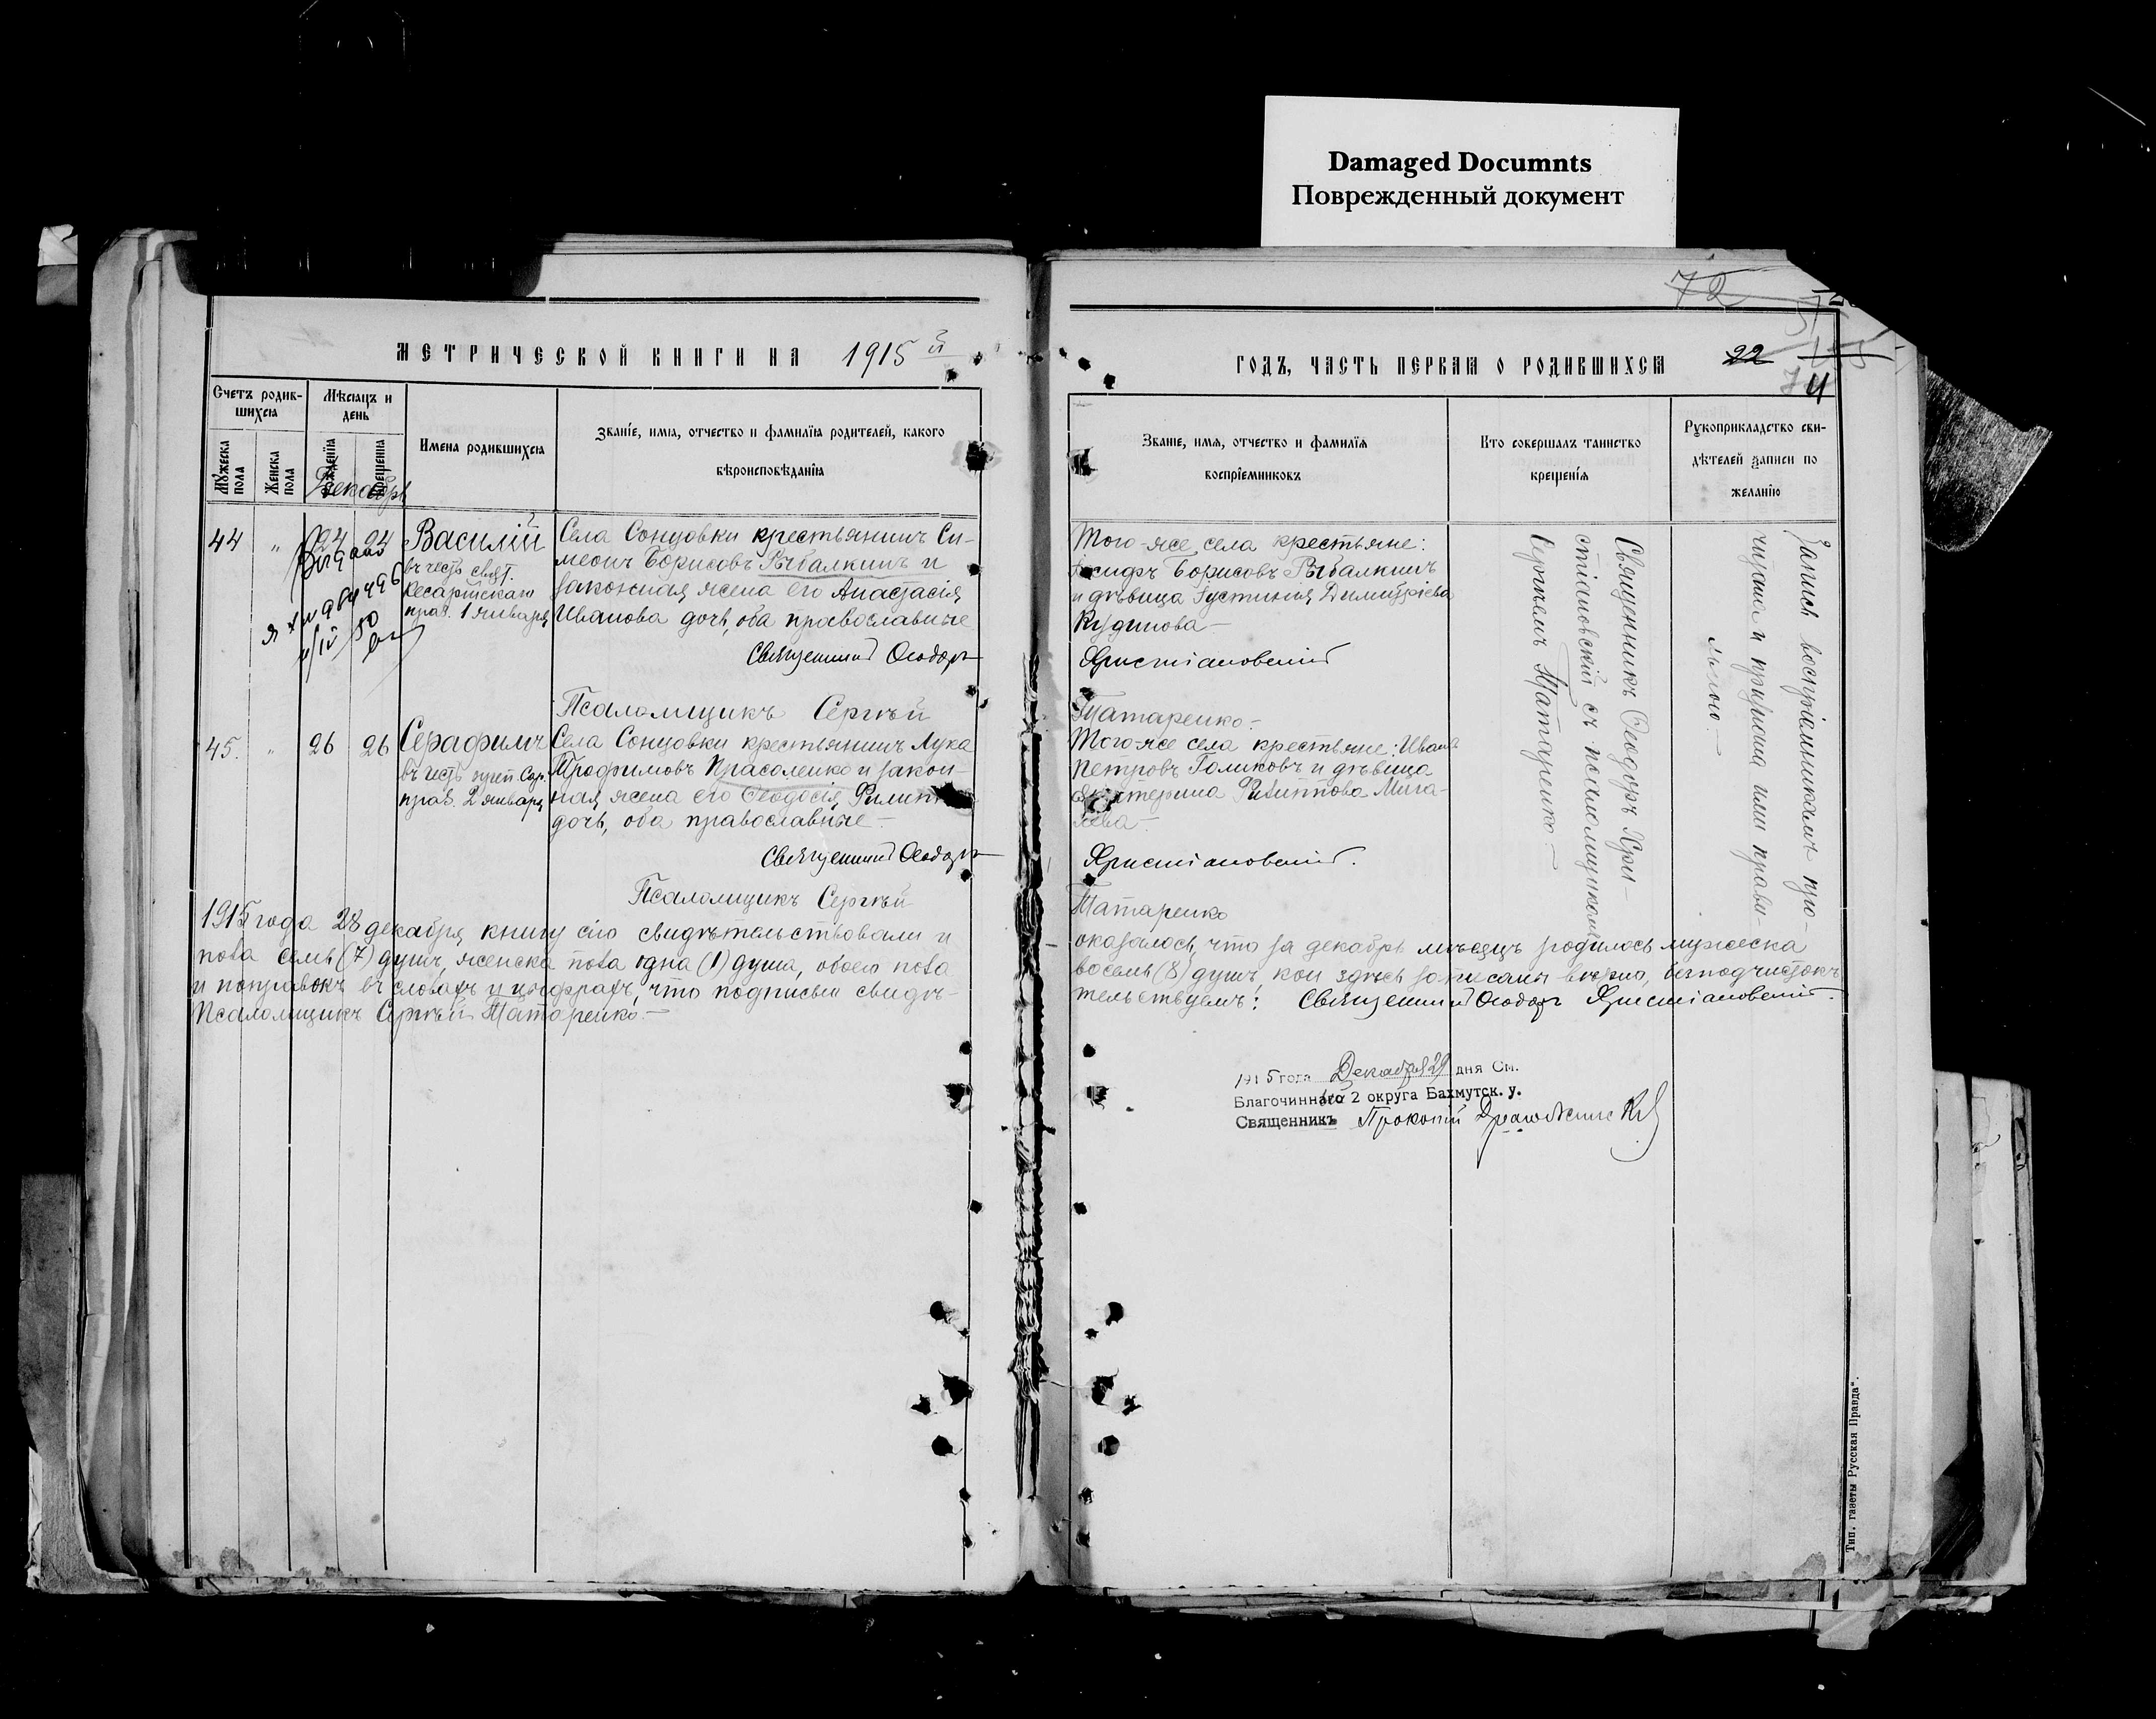 Damaged Documnts
Поврежденный документ
МЕТРИЧЕСКОЙ КНИГИ НА 1915 й
Счетъ родив-
шихся
Мѣсяцъ и
день
Мужеска
пола
Женска
пола
рожденія
крещенія
Имена родившихся
Званіе, имя, отчество и фамилія родителей, какого
вѣроисповѣданія
Декабрь
44 " 24 24 Василій
въ честь свят.
Кесарійскаго
праз. 1 января
Села Сонцовки крестьянинъ Си-
меонъ Борисовъ Рыбалкинъ и
законная жена его Анастасія
Иванова дочь, оба православные
Священникъ Ѳеодоръ
Псаломщикъ Сергѣй
45. " 26 26 Серафимъ
въ честь преп. Сер.
праз. 2 января
Села Сонцовки крестьянинъ Лука
Трофимовъ Прасоленко и закон-
ная жена его Ѳеодосія
дочь, оба православные –
Священникъ Ѳеодоръ
Псаломщикъ Сергѣй
1915 года 28 декабря книгу сію свидѣтельствовали и
пола семь (7) душъ, женска пола одна (1) душа, обоего пола
и поправокъ въ словахъ и цыфрахъ, что подписью свидѣ-
Псаломщикъ Сергѣй Татаренко. –
72
ГОДЪ, ЧАСТЬ ПЕРВАЯ О РОДИВШИХСЯ
22
Званіе, имя, отчество и фамилія
воспріемниковъ
Кто совершалъ таинство
крещенія
Рукоприкладство сви-
дѣтелей записи по
желанію
Того-же села крестьяне:
Борисовъ Рыбалкинъ
и дѣвица Густинія Димитріева
Кудинова –
Христіановскій
Татаренко –
Того-же села крестьяне: Иванъ
Петровъ Голиковъ и дѣвица
Филиппова
Христіановскій.
Татаренко
Священникъ Ѳеодоръ Хри-
стіановскій съ псаломщикомъ
Сергѣемъ Татаренко. –
Запись воспріемникамъ про-
читана и признана ими прави-
льною. –
оказалось, что за декабрь мѣсяцъ родилось мужеска
восемь (8) душъ, кои здѣсь записаны вѣрно, безъ подчистокъ
тельствуемъ: Священникъ Ѳеодоръ Христіановскій.
1915 года Декабря 29 дня См.
Благочиннаго 2 округа Бахмутск. у.
Священникъ Прокопій
Тип. газеты Русская Правда".